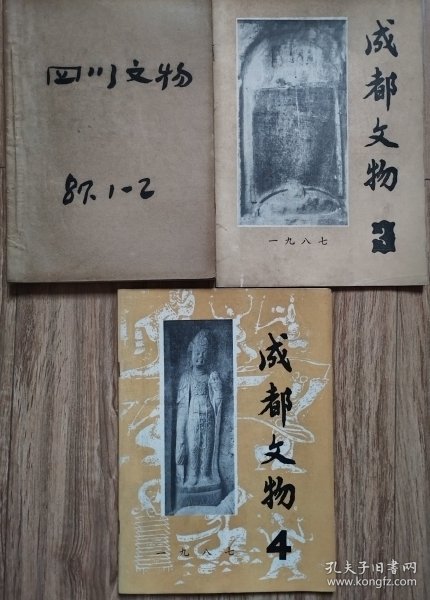 四川文物
87.1-2
成都文物
3
一九八七
成都文物
4
一九八七
孔夫子旧书网
www.kongfz.com